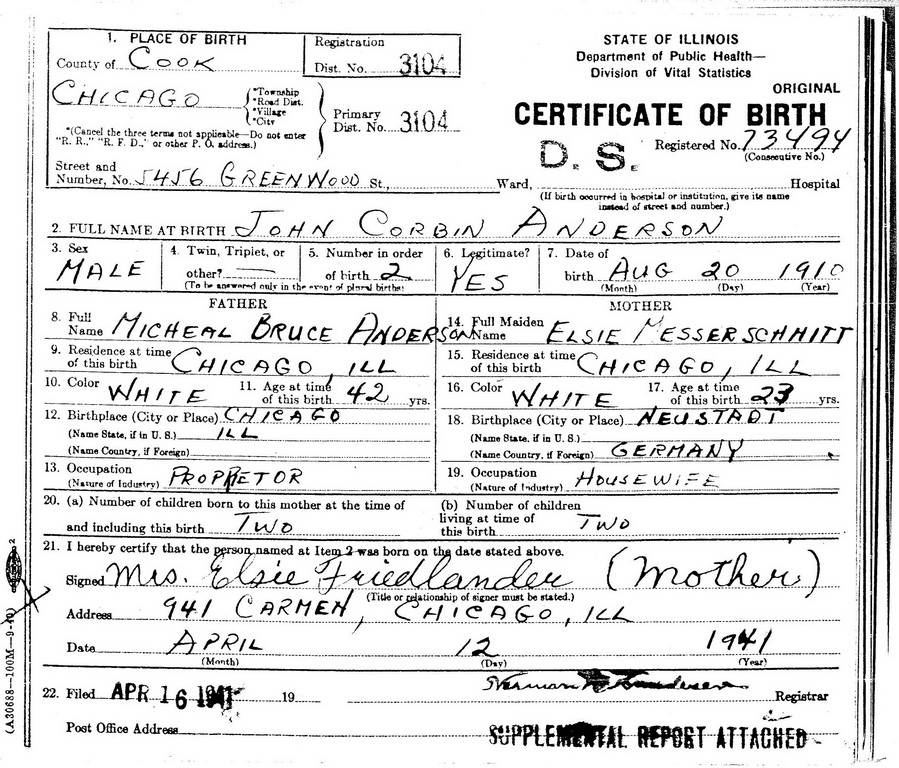 1. PLACE OF BIRTH
County of COOK
Registration
Dist. No. 3104
STATE OF ILLINOIS
Department of Public Health—
Division of Vital Statistics
ORIGINAL
CERTIFICATE OF BIRTH
CHICAGO
*Township
*Road Dist.
*Village
*City
Primary
Dist. No. 3104
*(Cancel the three terms not applicable—Do not enter
"R. R.," "R. F. D.," or other P. O. address.)
D. S.
Registered No. 73494
(Consecutive No.)
Street and
Number, No. 5456 GREENWOOD St., Ward, Hospital
(If birth occurred in hospital or institution, give its name
instead of street and number.)
2. FULL NAME AT BIRTH JOHN CORBIN ANDERSON
3. Sex
MALE
4. Twin, Triplet, or
other? —
5. Number in order
of birth 2
(To be answered only in the event of plural births)
6. Legitimate?
YES
7. Date of
birth AUG 20 1910
(Month) (Day) (Year)
FATHER
8. Full
Name MICHEAL BRUCE ANDERSON
9. Residence at time
of this birth CHICAGO, ILL
10. Color WHITE
11. Age at time
of this birth 42 yrs.
12. Birthplace (City or Place) CHICAGO
(Name State, if in U. S.) ILL
(Name Country, if Foreign)
13. Occupation
(Nature of Industry) PROPRIETOR
MOTHER
14. Full Maiden
Name ELSIE MESSERSCHMITT
15. Residence at time
of this birth CHICAGO, ILL
16. Color WHITE
17. Age at time
of this birth 23 yrs.
18. Birthplace (City or Place) NEUSTADT
(Name State, if in U. S.)
(Name Country, if Foreign) GERMANY
19. Occupation
(Nature of Industry) HOUSEWIFE
20. (a) Number of children born to this mother at the time of
and including this birth TWO
(b) Number of children
living at time of
this birth TWO
21. I hereby certify that the person named at Item 2 was born on the date stated above.
Signed Mrs. Elsie Friedlander (Mother)
(Title or relationship of signer must be stated.)
Address 941 CARMEN, CHICAGO, ILL
Date APRIL 12 1941
(Month) (Day) (Year)
22. Filed APR 16 1941 19
Herman N. Bundesen Registrar
Post Office Address
SUPPLEMENTAL REPORT ATTACHED
(A30688—100M—9-40)